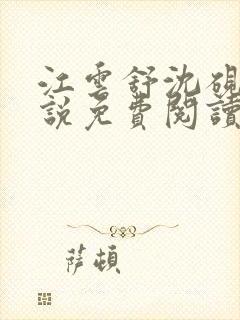 江雲舒沈硯
說免費閱讀
薩頓